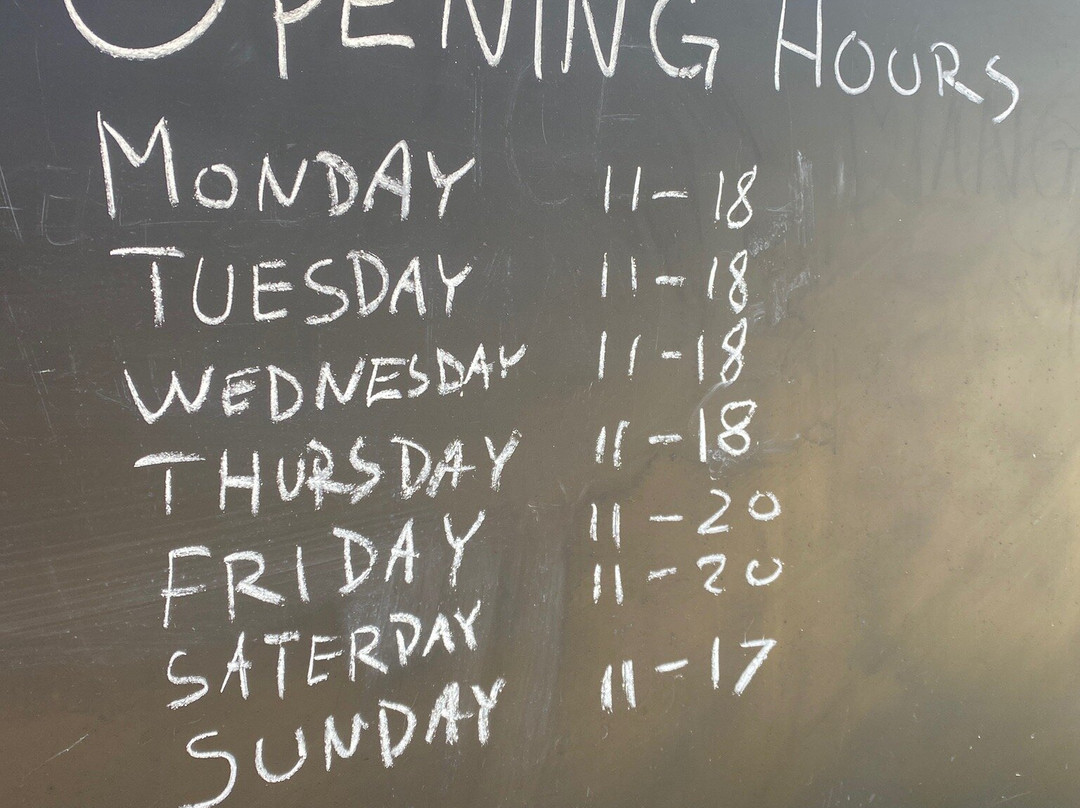 OPENING HOURS
MONDAY 11-18
TUESDAY 11-18
WEDNESDAY 11-18
THURSDAY 11-18
FRIDAY 11-20
SATERDAY 11-20
SUNDAY 11-17